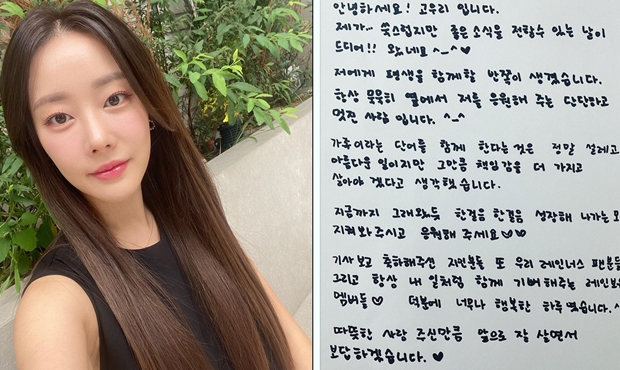 안녕하세요! 고우리 입니다.
제가... 쑥스럽지만 좋은소식을 전할수 있는 날이
드디어!! 왔네요 ^_^♥
저에게 평생을 함께할 반쪽이 생겼습니다.
항상 묵묵히 옆에서 저를 응원해 주는 단단하고
멋진 사람 입니다. ^_^
가족이라는 단어를 함께 한다는것은 정말 설레고
아름다운 일이지만 그만큼 책임감을 더 가지고
살아야 겠다고 생각했습니다.
지금까지 그래왔듯 한걸음 한걸음 성장해 나가는
지켜봐주시고 응원해 주세요♡♡
기사보고 축하해주신 지인분들 또 우리 레인너스 팬분들
그리고 항상 내 일처럼 함께 기뻐해주는 레인보
멤버들♡ 덕분에 너무나 행복한 하루 였습니다.^
따뜻한 사랑 주신만큼 앞으로 잘 살면서
보답하겠습니다. ♥